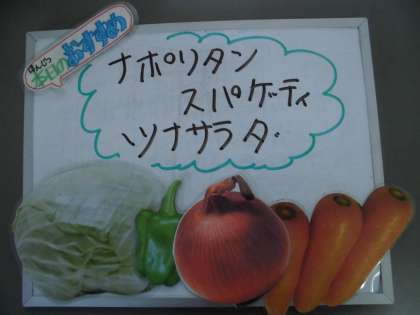 ほんじつ
本日の
おすすめ
ナポリタン
スパゲッティ
ツナサラダ